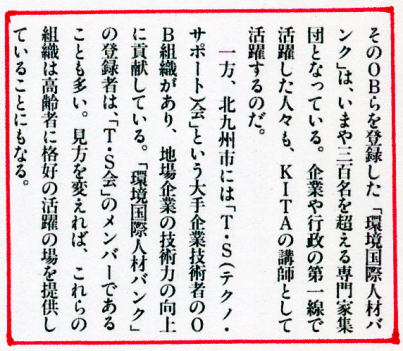 そのOBらを登録した「環境国際人材バ
ンク」は、いまや三百名を超える専門家集
団となっている。企業や行政の第一線で
活躍した人々も、KITAの講師として
活躍するのだ。
一方、北九州市には「T・S(テクノ・
サポート)会」という大手企業技術者のO
B組織があり、地場企業の技術力の向上
に貢献している。「環境国際人材バンク」
の登録者は、「T・S会」のメンバーである
ことも多い。見方を変えれば、これらの
組織は高齢者に格好の活躍の場を提供し
ていることにもなる。